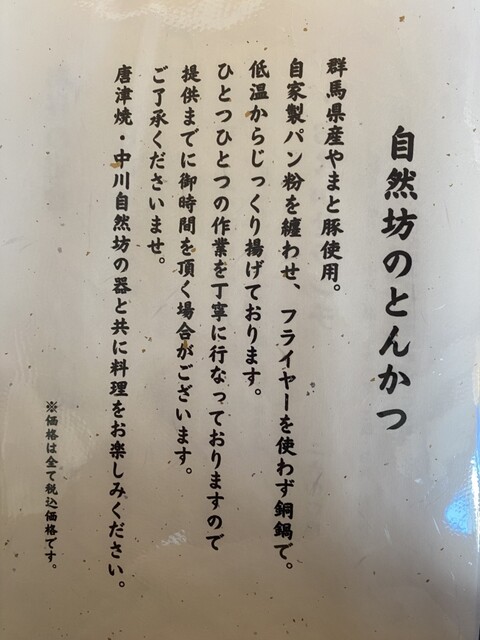 自然坊のとんかつ
群馬県産やまと豚使用。
自家製パン粉を纏わせ、フライヤーを使わず銅鍋で。
低温からじっくり揚げております。
ひとつひとつの作業を丁寧に行なっておりますので
提供までに御時間を頂く場合がございます。
ご了承くださいませ。
唐津焼・中川自然坊の器と共に料理をお楽しみください。
※価格は全て税込価格です。